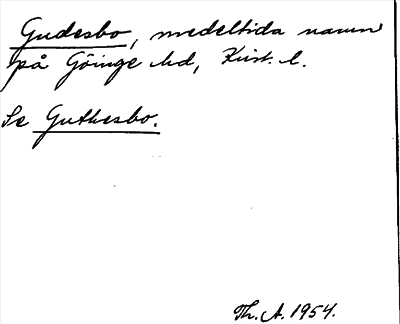 Gudesbo, medeltida namn
på Göinge hd, Krist. l.
Se Guthesbo.
Th. A. 1954.